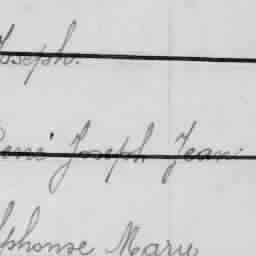 Joseph.
René Joseph Jean
lphonse Marie